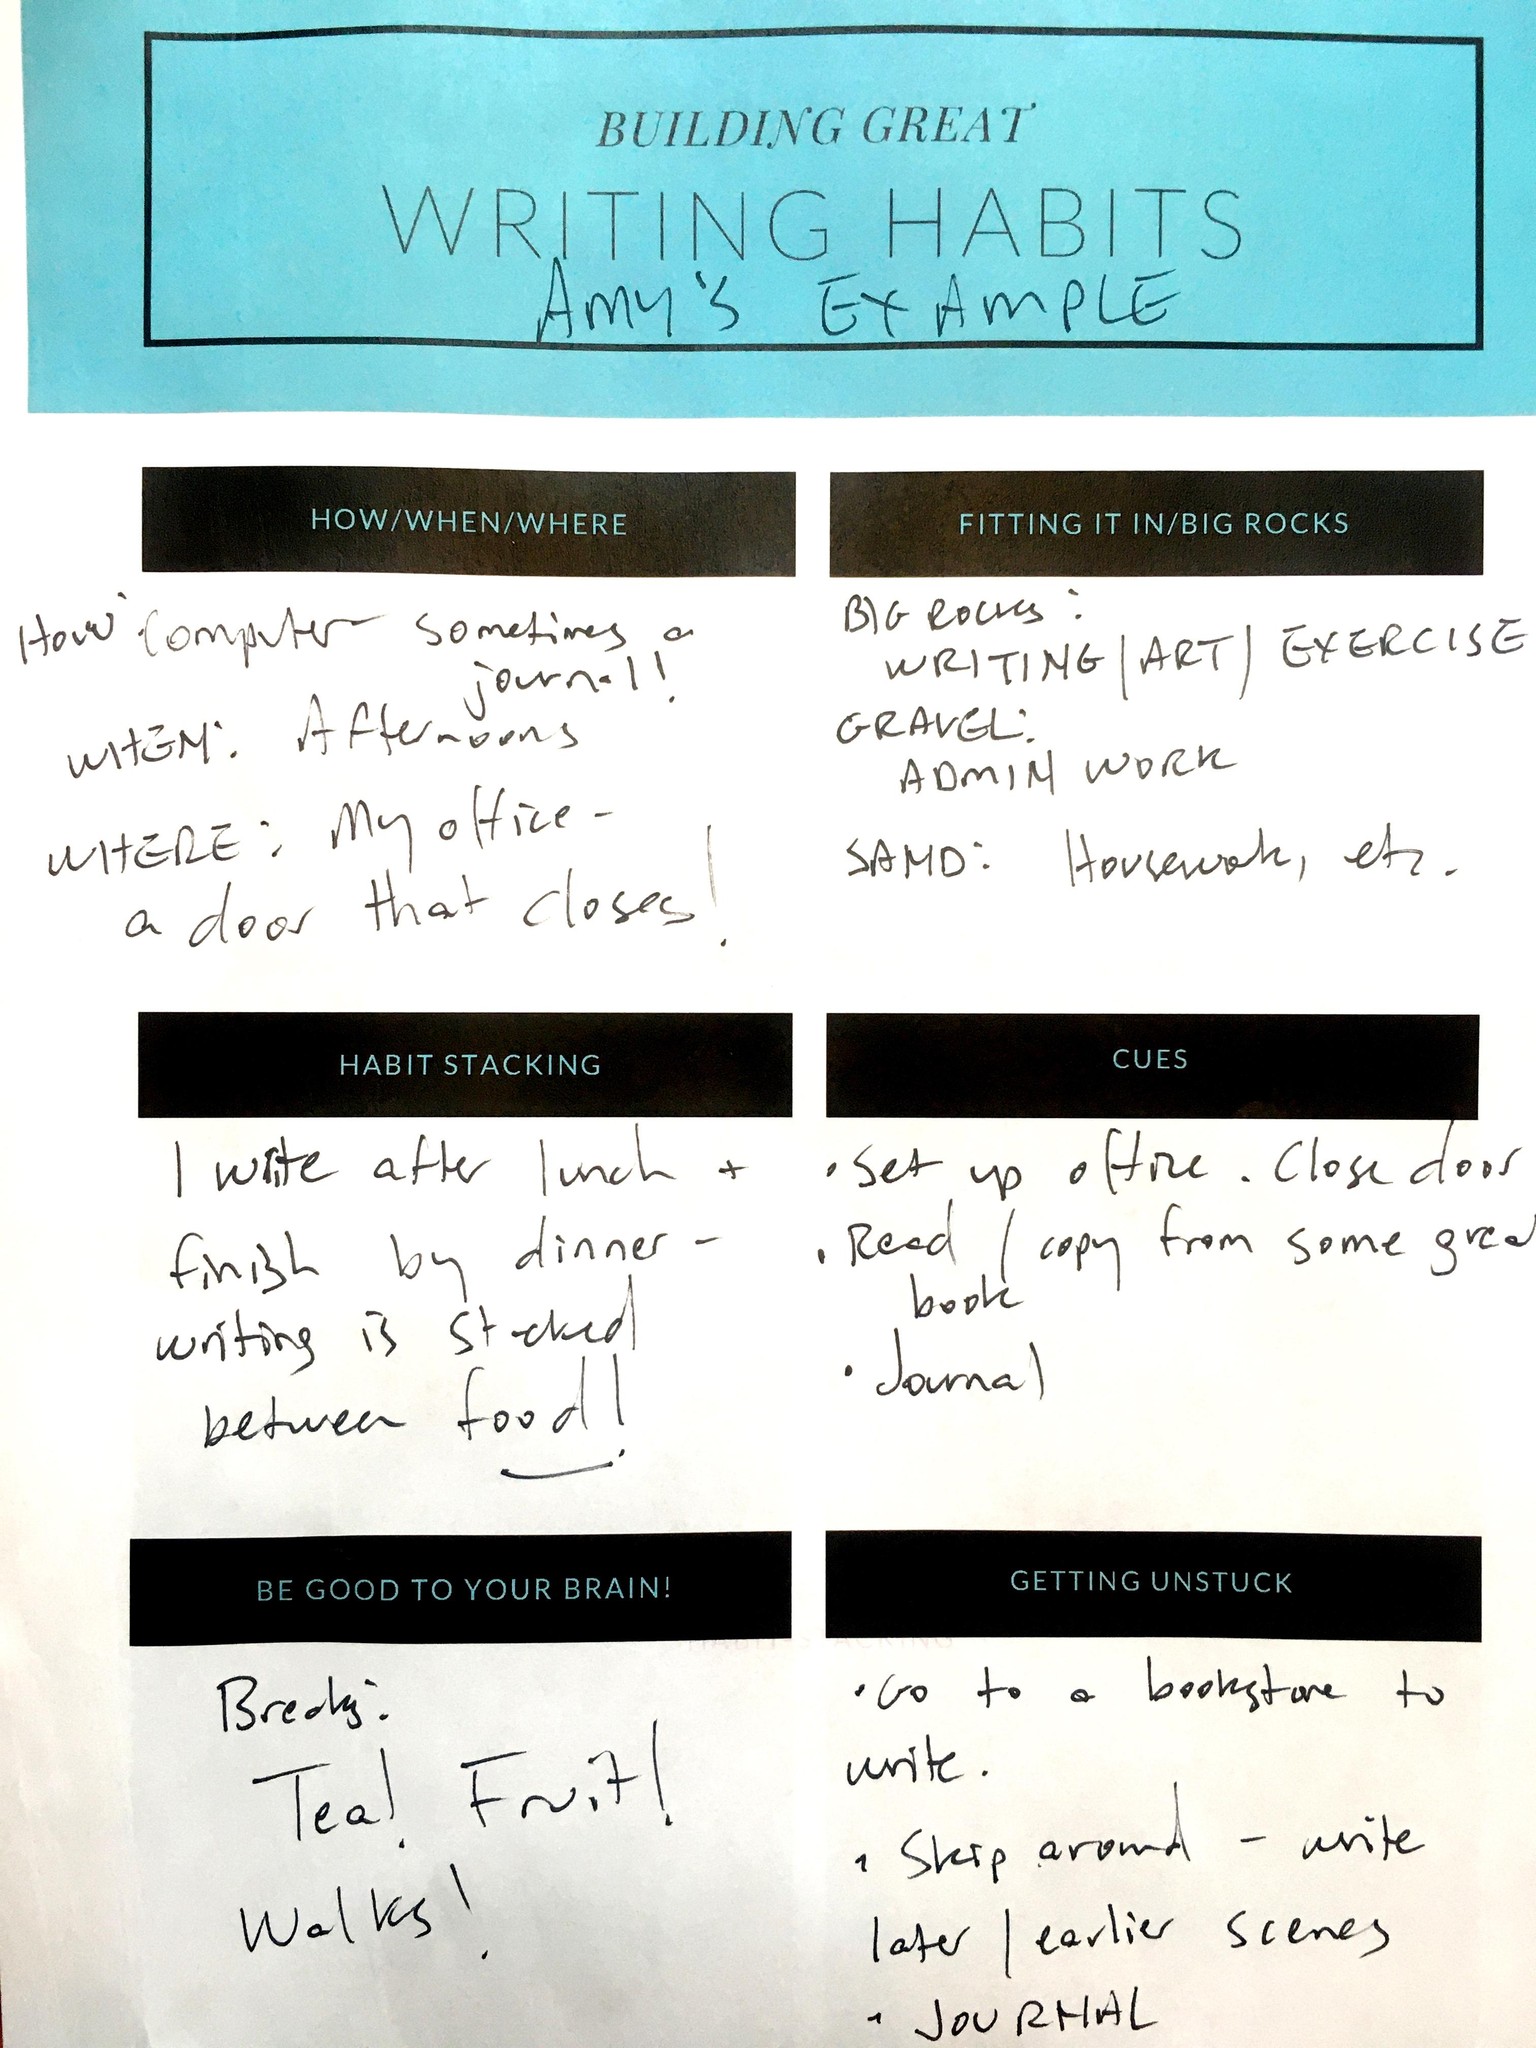 BUILDING GREAT
WRITING HABITS
AMY'S EXAMPLE
HOW/WHEN/WHERE
How: Computer sometimes a
journal!
WHEN: Afternoons
WHERE: My office -
a door that closes!
FITTING IT IN/BIG ROCKS
BIG ROCKS:
WRITING/ART/EXERCISE
GRAVEL:
ADMIN WORK
SAND: Housework, etc.
HABIT STACKING
I write after lunch +
finish by dinner -
writing is stacked
between food!
CUES
• Set up office. Close door
• Read / copy from some grea
book
• Journal
BE GOOD TO YOUR BRAIN!
Breaks:
Tea! Fruit!
Walks!
GETTING UNSTUCK
• Go to a bookstore to
write.
• Skip around - write
later/earlier scenes
• JOURNAL